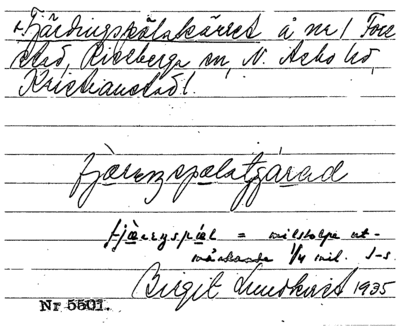 + Fjärdingspålakärret å nr 1 Fore
stad, Riseberga sn, N. Åsbo hd,
Kristianstad l.
fjæreŋspǫlatjärad
fjæreŋspǫl = milstolpe ut-
märkande 1/4 mil. J-s.
Birgit Lundkvist 1935
Nr 5501.